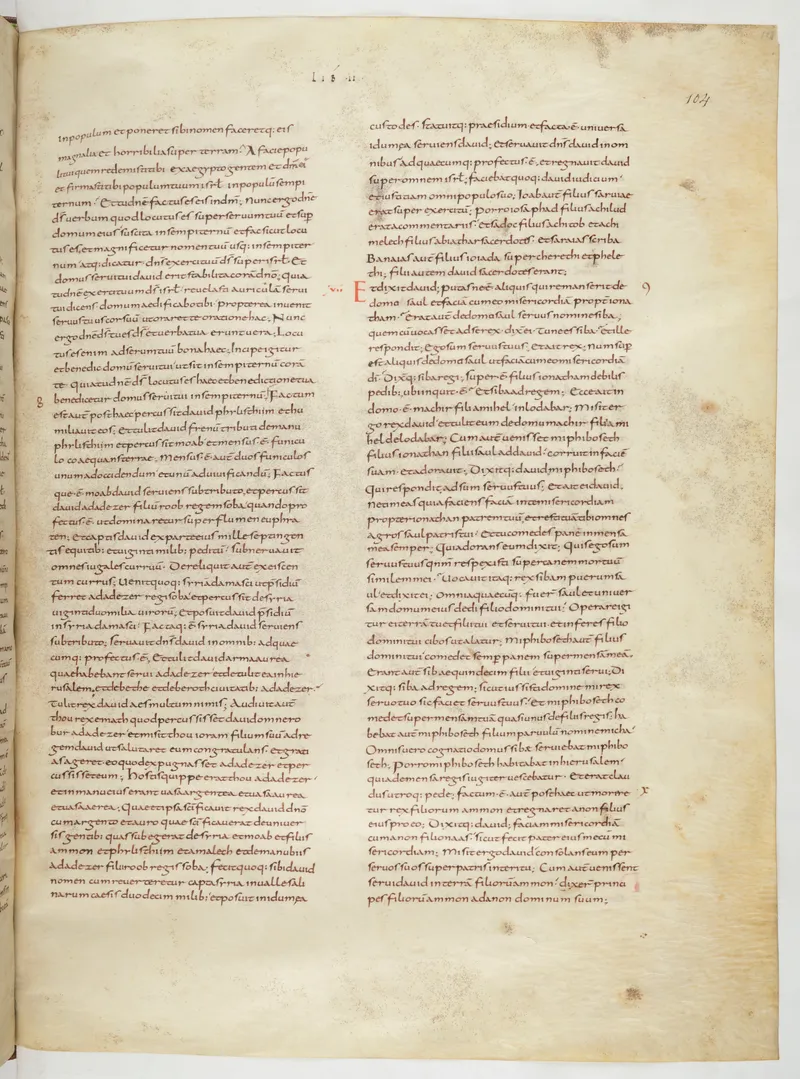 LIB II
104
inpopulum et poneret sibi nomen faceretq: eis
magnalia et horribilia super terram; A facie popu
li tui quem redemisti tibi ex aegypto gentem et dm̄ ei
et firmasti tibi populum tuum isrl̄ in populū sempi
ternum; Et tu dn̄e factus es eis in dm̄; nunc ergo dn̄e
ds̄ uerbum quod locutus es super seruum tuū et sup
domum eius suscita in sempiternū et fac sicut locu
tus es, et magnificetur nomen tuū usq: in sempiter
num atq: dicatur dn̄s exercituū ds̄ super isrl̄ Et
domus serui tui dauid erit stabilita corā dn̄o; quia
tu dn̄e exercituum ds̄ isrl̄ reuelasti auriculā serui
tui dicens domum aedificabo tibi propterea inuenit
seruus tuus cor suū ut oraret te oratione hac; Nunc
ergo dn̄e ds̄ tu es ds̄ et uerba tua erunt uera; Locu
tus es enim ad seruum tuū bona haec; Incipe igitur
et benedic domū serui tui ut sit in sempiternū corā
te quia tu dn̄e ds̄ locutus es haec et benedictione tua
benedicetur domus serui tui in sempiternū; Factum
8
est aut̄ post haec percussit dauid philisthim et hu
miliauit eos; et tulit dauid frenū tributi de manu
philisthim et percussit moab et mensus ē funicu
lo coaequans terrae; Mensus ē aut̄ duos funiculos
unum ad occidendum et unū ad uiuificandū; Factus
que ē moab dauid seruiens sub tributo, et percussit
dauid adadezer filiū roob regem soba quando pro
fectus ē ut dominaretur super flumen euphra
ten; et captis dauid ex parte eius mille septingen
tis equitib: et uiginti milib: peditū subneruauit
omnes iugales curruū; Dereliquit aut̄ ex eis cen
tum currus; Uenit quoq: syria damasci ut p̄sidiū
ferret adadezer regi soba et percussit de syria
uiginti duo milia uirorū; et posuit dauid p̄sidiū
in syria damasci; Factaq: ē syria dauid seruiens
sub tributo; seruauit dn̄s dauid in omnib: ad quae
cumq: profectus ē; Et tulit dauid arma aurea
quae habebant serui adadezer et detulit ea in hie
rusalem, et de bethe et de beroth ciuitatib: adadezer
Tulit rex dauid aes multum nimis; Audiuit aut̄
thou rex emath quod percussisset dauid omne ro
bur adadezer et misit thou ioram filium suū ad re
gem dauid ut salutaret eum congratulans et gratias
ageret eo quod expugnasset adadezer et per
cussisset eum; hostis quippe erat thou adadezer
et in manu eius erant uasa argentea et uasa aurea
et uasa aerea; Quae et ipsa sc̄ificauit rex dauid dn̄o
cum argento et auro quae sc̄ificauerat de uniuer
sis gentib: quas subegerat de syria et moab et filiis
ammon et philisthim et amalech et de manubiis
adadezer filii roob regis soba; fecit quoq: sibi dauid
nomen cum reuerteretur capta syria in ualle sali
narum caesis duodecim milib: et posuit in idumea
custodes statuitq: praesidium et facta ē uniuersa
idumea seruiens dauid; et seruauit dn̄s dauid in om
nibus ad quaecumq: profectus ē, et regnauit dauid
super omnem isrl̄; faciebat quoq: dauid iudicium
et iustitiam omni populo suo; Ioab aut̄ filius saruiae
erat super exercitū; porro iosaphad filius achilud
erat a commentariis; et sadoc filius achitob et achi
melech filius abiathar sacerdotes et saraias scriba
Banaias aut̄ filius ioiada super cherethi et phele
thi; filii autem dauid sacerdotes erant;
vıı
Et dixit dauid; putasne ē aliquis qui remanserit de
9
domo saul et faciā cum eo misericordiā propt̄ iona
than; Erat aut̄ de domo saul seruus nomine siba;
quem cū uocasset ad se rex dix̄ ei; Tu ne es siba et ille
respondit; Ego sum seruus tuus; Et ait rex; num sup
est aliquis de domo saul ut faciā cum eo misericordiā
di; Dix̄q: siba regi; super ē filius ionathan debilis
pedib; ubi inquit ē Et siba ad regem; Ecce ait in
domo ē machir filii amihel in lodabar; Misit er
go rex dauid et tulit eum de domo machir filii ami
hel de lodabar; Cum aut̄ uenisset miphiboseth
filius ionathan filii saul ad dauid corruit in faciē
suam et adorauit; Dixitq: dauid, miphiboseth
Qui respondit adsum seruus tuus; Et ait ei dauid;
ne timeas quia faciens faciā in te misericordiam
propter ionathan patrem tuū et restituā tibi omnes
agros saul patris tui et tu comedes panē in mensa
mea semper; Qui adorans eum dixit; Quis ego sum
seruus tuus qnm̄ respexisti super canem mortuū
similem mei; Uocauit itaq: rex sibam puerum sa
ul et dixit ei; Omnia quaecūq: fuer̄ saul et uniuer
sam domum eius dedi filio domini tui; Operare igi
tur ei terrā tu et filii tui et serui tui et inferes filio
domini tui cibos ut alatur; miphiboseth aut̄ filius
domini tui comedet semp̄ panem super mensā meā;
Erant aut̄ sibae quindecim filii et uiginti serui; Di
xitq: siba ad regem; sicut iussisti domine mi rex
seruo tuo sic faciet seruus tuus; Et miphiboseth co
medet super mensā tuā quasi unus de filiis regis; ha
bebat aut̄ miphiboseth filium paruulū nomine micha
Omnis uero cognatio domus sibae seruiebat miphibo
seth; porro miphiboseth habitabat in hierusalem
quia de mensa regis iugiter uescebatur Et erat clau
dus utroq: pede; factum ē aut̄ post haec ut morere
X
tur rex filiorum ammon et regnaret anon filius
eius pro eo; Dixitq: dauid; faciam misericordiā
cum anon filio naas sicut fecit pater eius mecū mi
sericordiam; Misit ergo dauid consolans eum per
seruos suos super patris interitu; Cum aut̄ uenissent
serui dauid in terrā filiorū ammon dixer̄ prin
pes filiorū ammon ad anon dominum suum;